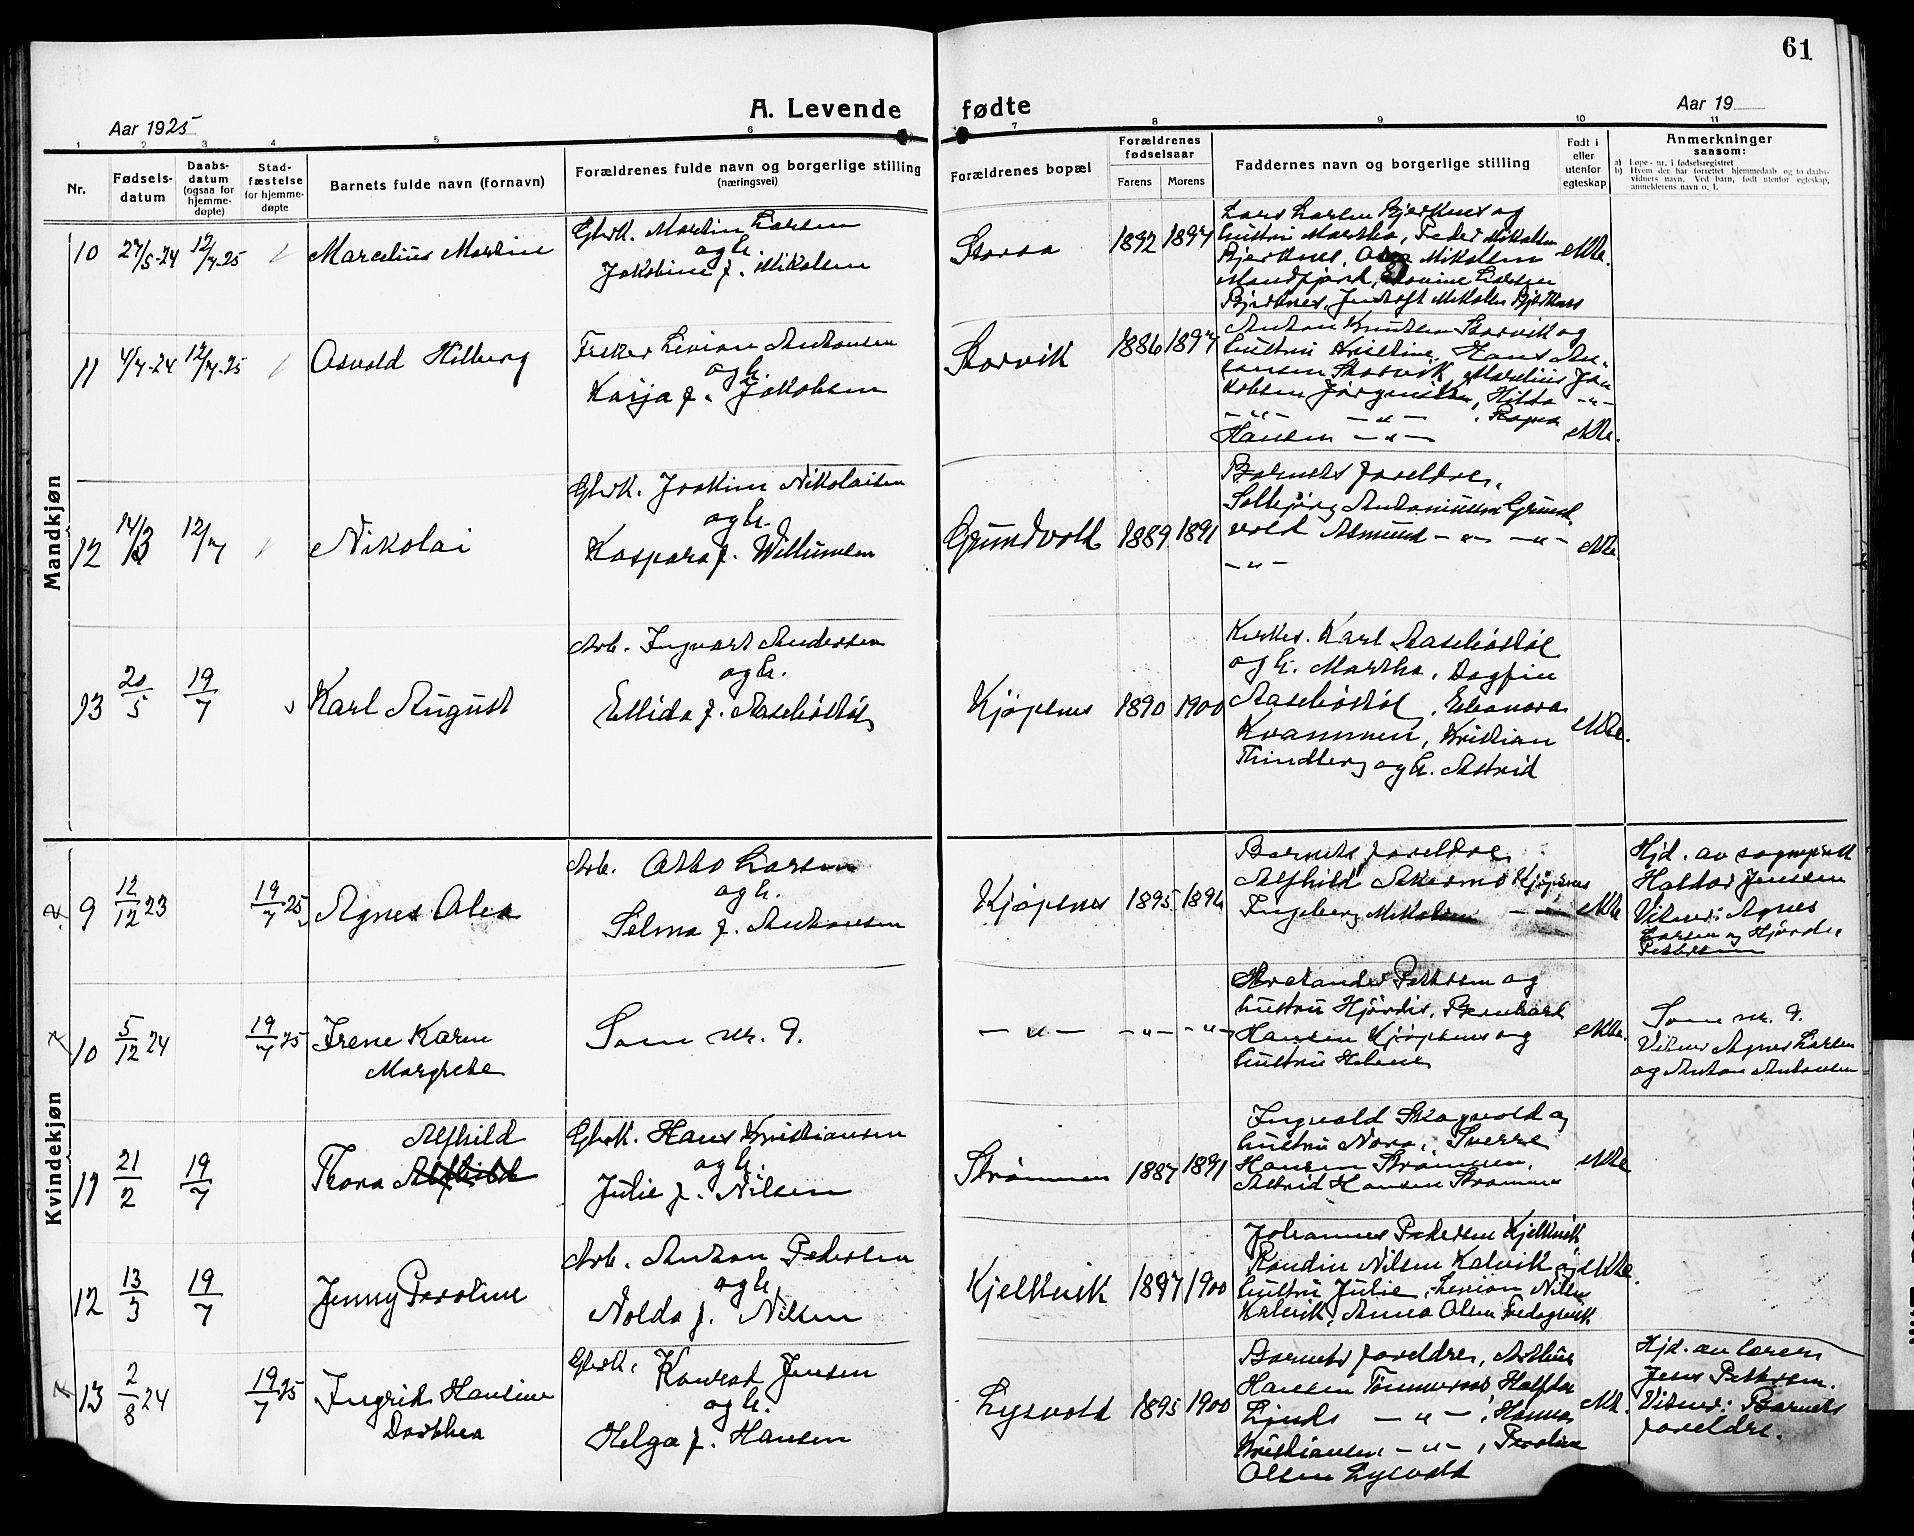 61
A. Levende fødte
Aar 1925
Aar 19
1 2 3 4 5 6 7 8 9 10 11
Nr.
Fødsels-
datum
Daabs-
datum
(ogsaa for
hjemme-
døpte)
Stad-
fæstelse
for hjemme-
døpte
Barnets fulde navn (fornavn)
Forældrenes fulde navn og borgerlige stilling
(næringsvei)
Forældrenes bopæl
Forældrenes
fødselsaar
Farens Morens
Faddernes navn og borgerlige stilling
Født i
eller
utenfor
egteskap
Anmerkninger
saasom:
a) Løpe-nr. i fødselsregistret
b) Hvem der har forrettet hjemmedaab og to daabs-
vidners navn. Ved barn, født utenfor egteskap,
anmelderens navn o. l.
Mandkjøn
10 27/5-24 12/7-25 Marcelius Martin
Gbrk. Martin Larsen
og h.
Jakobine f. Mikalsen
Storaa 1892 1897
Lars Larsen Bjerknes og
hustru Martha, Peder Mikalsen
Bjerknes, Mikalsen
Larsen
Bjerknes, Mikalsen Bjerknes
ekte.
11 4/7-24 12/7-25 Osvold Hilberg
Fisker Livian Antonsen
og h.
Kaija f. Jakobsen
Storvik 1886 1897
Anton Knutsen Storvik og
hustru Kristine, Hans An-
tonsen Storvik, Marelius Ja-
kobsen Hilda -"-
-"- -"- , Ragna
Hansen -"-
ekte.
12 14/3 12/7 Nikolai
Gbrk. Joakim Nikolaisen
og h.
Kaspara f. Willumsen
Grundvold 1889 1891
Barnets foreldre,
Solbjørg Antoniussen Grund-
vold Asmund -"- -"-
-"-
ekte.
13 20/5 19/7 Karl August
Arb. Ingvart Andersen
og h.
Ellida f. Aasebøstøl
Kjøpsnes 1890 1900
Kirkes. Karl Aasebøstøl
og h. Martha, Dagfin
Aasebøstøl, Eleonora
Kvammen, Kristian
Thindberg og h. Astrid
ekte.
Kvindekjøn
9 12/12 23 19/7 25 Agnes Alea
Arb. Otto Larsen
og h.
Selma f. Antonsen
Kjøpsnes 1895 1896
Barnets foreldre
Alfhild Akermo Kjøpsnes
Ingeborg Mikalsen -"-
ekte
Hjd. av sogneprest
Haldor Jenssen
Vitner: Agnes
Larsen og Hjørdis
Pettersen
10 5/12 24 19/7 25 Irene Karin
Margrete
Som nr. 9.
-"- -"- -"-
Pettersen og
hustru Hjørdis, Bernhart
Hansen Kjøpsnes og
hustru Helene
ekte.
Som nr. 9.
Vitner Agnes Larsen
og Anton Antonsen
Alfhild
11 21/2 19/7 Thora Alfhild
Gbrk. Hans Kristiansen
og h.
Julie f. Nilsen
Strømmen 1887 1891
Ingvald Skogvold og
hustru Nora, Sverre
Hansen Strømmen,
Astrid Hansen Strømmen
ekte
12 13/3 19/7 Jenny Paroline
Arb. Anton Pedersen
og h.
Nolda f. Nilsen
Kjelkvik 1897 1900
Johannes Pedersen Kjelkvik
Rondin Nilsen Kalvik og
hustru Julie, Livian Nilsen
Kalvik, Anna Olsen
ekte.
13 2/8 24 19/7 25 Ingrid Hansine
Dorthea
Gbrk. Konrad Jensen
og h.
Helga f. Hansen
Lysvold 1895 1900
Barnets foreldre, Arthur
Hansen Tømmeraas, Halfdan
Linds -"- , Hanna
Kristiansen -"- , Paroline
Olsen Lysvold
ekt.
Hjd. av lærer
Jens Pettersen.
Vitner: Barnets
foreldre.